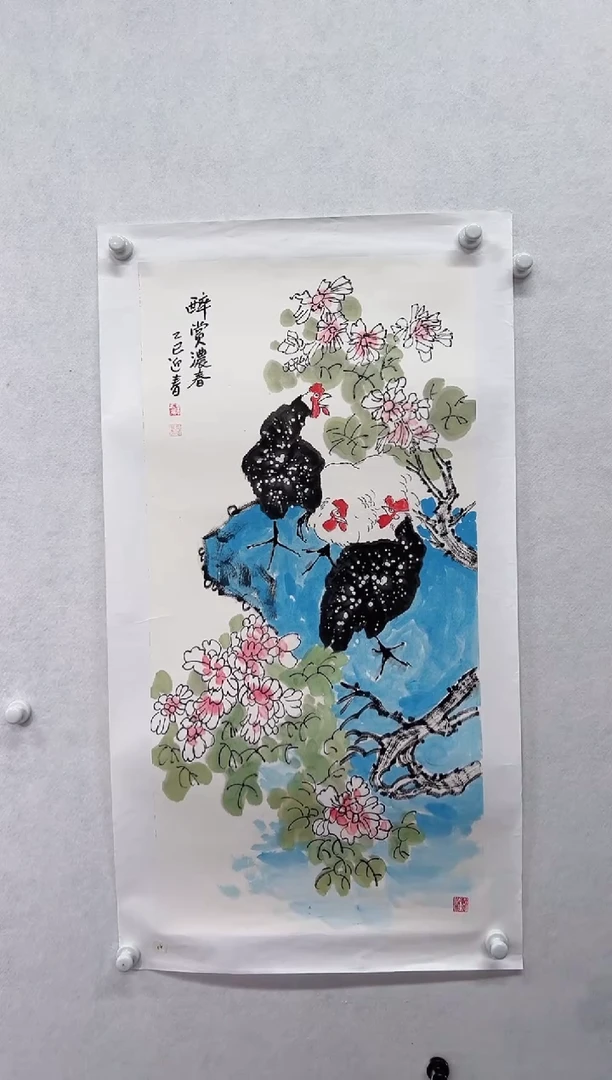 醉赏濃春
乙巳迎春